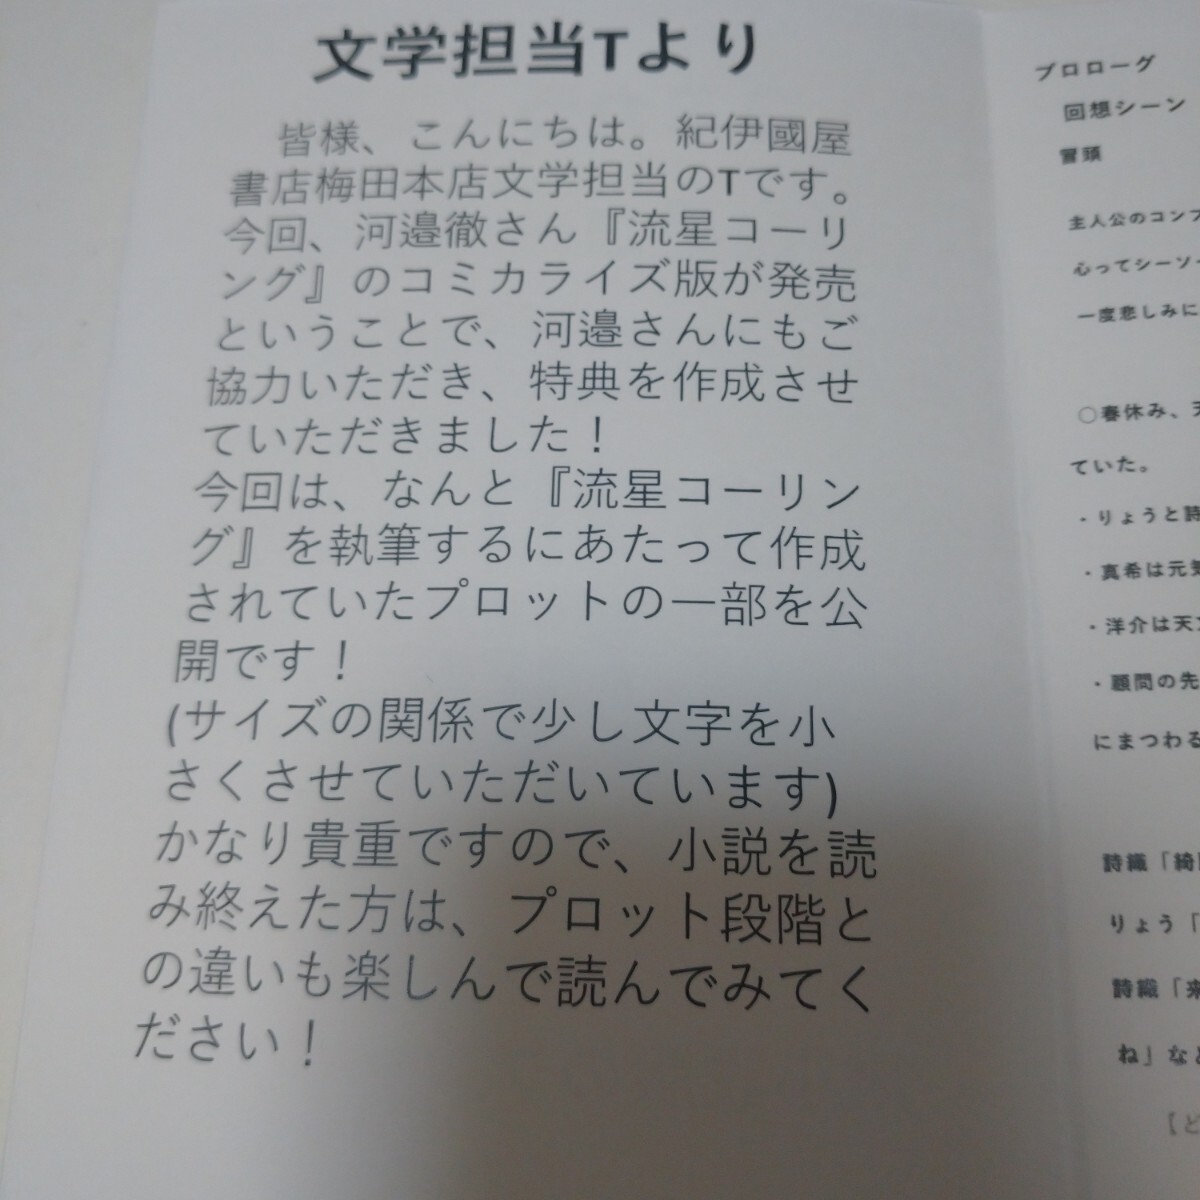 文学担当Tより
皆様、こんにちは。紀伊國屋
書店梅田本店文学担当のTです。
今回、河邉徹さん『流星コーリ
ング』のコミカライズ版が発売
ということで、河邉さんにもご
協力いただき、特典を作成させ
ていただきました！
今回は、なんと『流星コーリン
グ』を執筆するにあたって作成
されていたプロットの一部を公
開です！
(サイズの関係で少し文字を小
さくさせていただいています)
かなり貴重ですので、小説を読
み終えた方は、プロット段階と
の違いも楽しんで読んでみてく
ださい！
プロローグ
回想シーン
冒頭
主人公のコンプ
心ってシーソー
一度悲しみに
○春休み、天
ていた。
・りょうと詩
・真希は元気
・洋介は天文
・顧問の先
にまつわる
詩織「綺
りょう「
詩織「来
ね」など
【ど